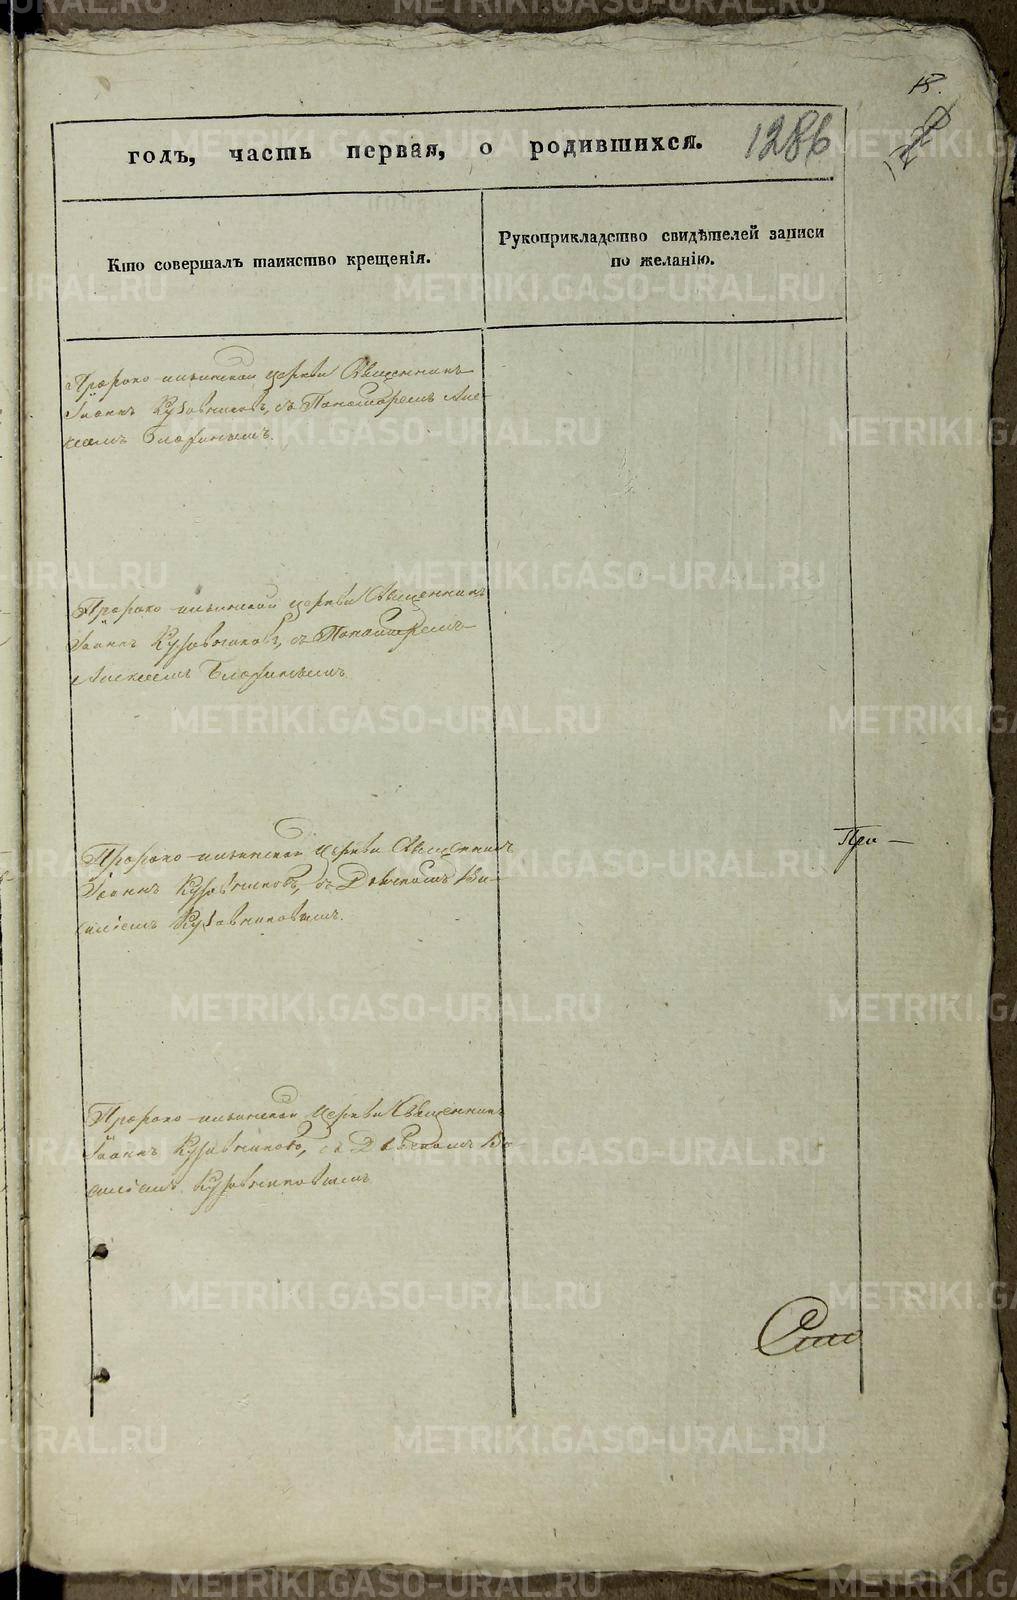 18.
1286
годъ, часть первая, о родившихся.
Кто совершалъ таинство крещенія.
Рукоприкладство свидѣтелей записи
по желанію.
Пророко-ильинской церкви Священникъ
Іоаннъ Кузовниковъ, съ Пономаремъ Але-
ксѣемъ
Пророко-ильинской церкви Священникъ
Іоаннъ Кузовниковъ, съ Пономаремъ
Алексѣемъ
Пророко-ильинской церкви Священникъ
Іоаннъ Кузовниковъ, съ Дьячкомъ Ва-
силіемъ Кузовниковымъ.
При—
Пророко-ильинской церкви Священникъ
Іоаннъ Кузовниковъ, съ Дьячкомъ Ва-
силіемъ Кузовниковымъ
METRIKI.GASO-URAL.RU